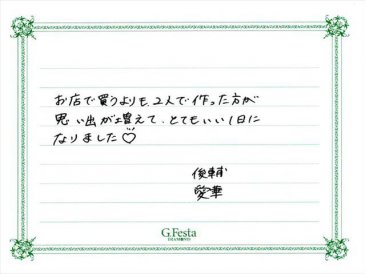 お店で買うよりも、2人で作った方が
思い出が増えて、とてもいい1日に
なりました♡
俊輔
愛華
G.Festa
DIAMOND